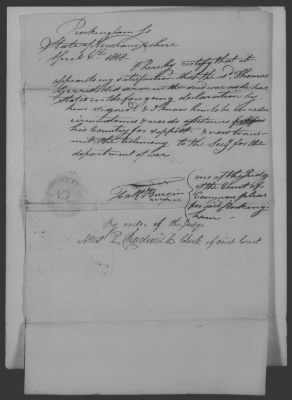 Rockingham Ss
State of Newhampshire
April 6th 1818.
I hereby certify that it
appears to my satisfaction that the sd. Thomas
did serve in the said war as he has
stated in the foregoing declaration by
him signed & I know him to be in reduced
circumstances & needs assistance from
his Country for support & now trans-
mit the testimony to the Secy for the
department of War
one of the Judges
of the Court of
Common pleas
for said Rocking-
ham
By order of the Judge
Attest P. Chadwick Clerk of said Court